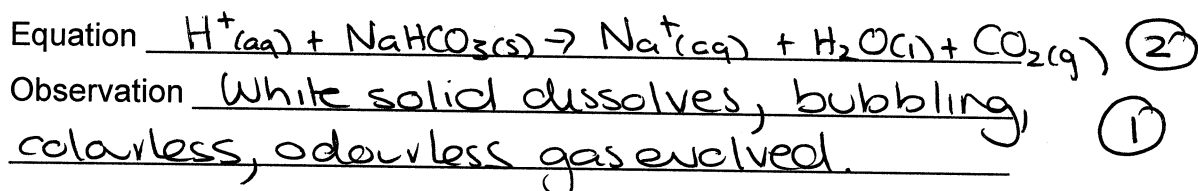 Equation H⁺(aq) + NaHCO₃(s) → Na⁺(aq) + H₂O(l) + CO₂(g) ②
Observation White solid dissolves, bubbling, ①
colarless, odourless gas evolved.